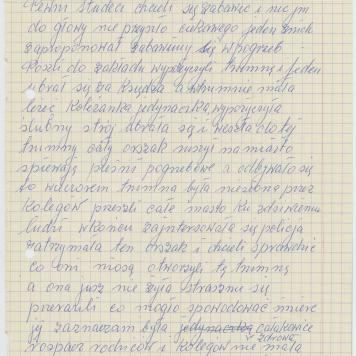 Pewni studeci chcieli się zabawić i nic im
do głowy nie przyszło ciekawego jeden z nich
zaproponował zabawimy się w pogrzeb
Poszli do zakładu wypożyczyli trumnę i jeden
ubrał się za księdza a w trumnie miała
leżeć koleżanka jedynaczka wypożyczyła
ślubny strój ubrała się i weszła do tej
trumny cały orszak ruszył na miasto
śpiewają pieśni pogrzebowe a odbywało się
to wieczorem trumna była niesiona przez
kolegów przeszli całe miasto ku zdziwieniu
ludzi w końcu zainteresowała się policja
zatrzymała ten orszak i chcieli sprawdzić
co oni niosą otworzyli tę trumnę
a ona już nie żyła strasznie się
przerazili co mogło spowodować śmierć
jej zaznaczam była jedynaczką całkowicie
zdrowa
rozpacz rodziców i kolegów nie miała